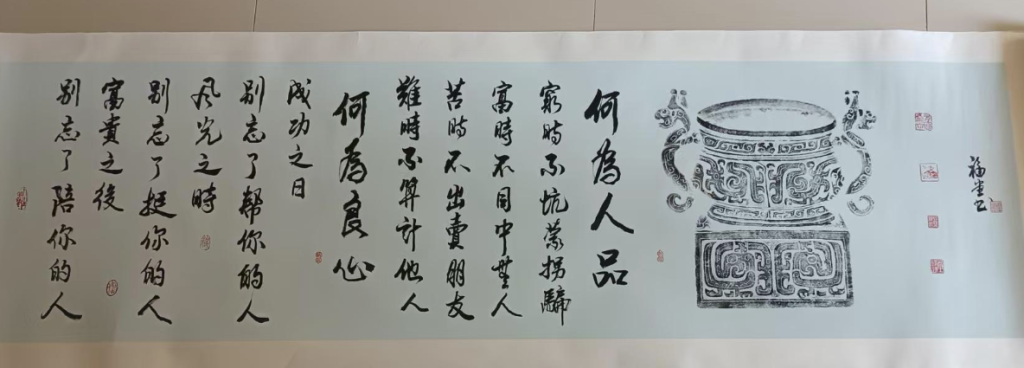 何為人品
窮時不坑蒙拐騙
富時不目中無人
苦時不出賣朋友
難時不算計他人
何為良心
成功之日
别忘了帮你的人
风光之時
别忘了挺你的人
富貴之後
别忘了陪你的人